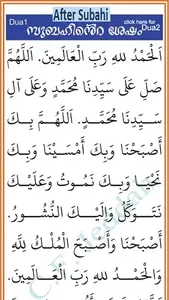 After Subahi
Dua1
click here for
Dua2
സുബഹിന്റെ ശേഷം
اَلْحَمْدُ للهِ رَبِّ الْعَالَمِينَ. اَللَّهُمَّ
صَلِّ عَلَى سَيِّدِنَا مُحَمَّدٍ وَعَلَى آلِ
سَيِّدِنَا مُحَمَّدٍ. اَللَّهُمَّ بِكَ
أَصْبَحْنَا وَبِكَ أَمْسَيْنَا وَبِكَ
نَحْيَا وَبِكَ نَمُوتُ وَعَلَيْكَ
نَتَوَكَّلُ وَإِلَيْكَ النُّشُورُ.
أَصْبَحْنَا وَأَصْبَحَ الْمُلْكُ لِلَّهِ
وَالْحَمْدُ لله رَبِّ الْعَالَمِينَ.